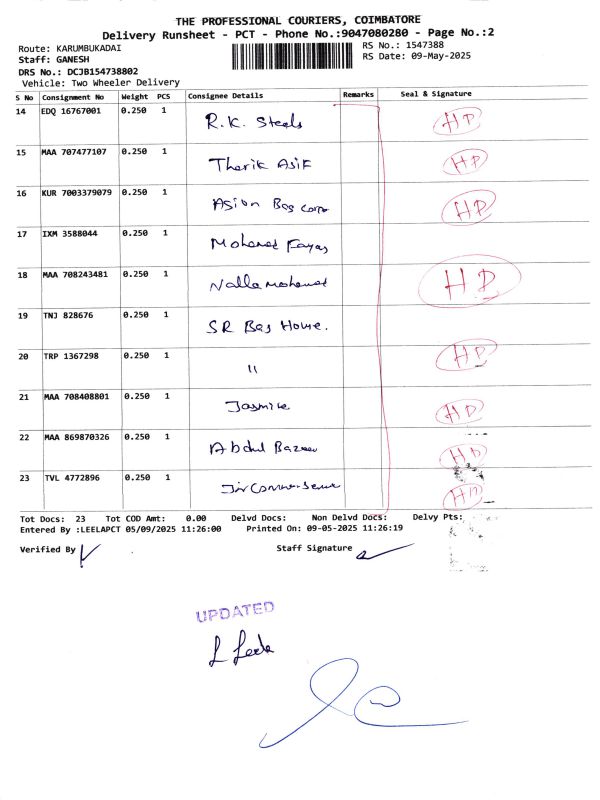 THE PROFESSIONAL COURIERS, COIMBATORE
Delivery Runsheet - PCT - Phone No.:9047080280 - Page No.:2
Route: KARUMBUKADAI RS No.: 1547388
Staff: GANESH RS Date: 09-May-2025
DRS No.: DCJB154738802
Vehicle: Two Wheeler Delivery
S No Consignment No Weight PCS Consignee Details Remarks Seal & Signature
14 EDQ 16767001 0.250 1 R.K. Steels HD
15 MAA 707477107 0.250 1 Tharik Asik HD
16 KUR 7003379079 0.250 1 Asian Bag HD
17 IXM 3588044 0.250 1 Mohamed Fayas
18 MAA 708243481 0.250 1 Nalla Mohamed HD
19 TNJ 828676 0.250 1 SR Bag House.
20 TRP 1367298 0.250 1 11 HD
21 MAA 708408801 0.250 1 HD
22 MAA 869870326 0.250 1 Abdul HD
23 TVL 4772896 0.250 1 HD
Tot Docs: 23 Tot COD Amt: 0.00 Delvd Docs: Non Delvd Docs: Delvy Pts:
Entered By :LEELAPCT 05/09/2025 11:26:00 Printed On: 09-05-2025 11:26:19
Verified By Staff Signature
UPDATED